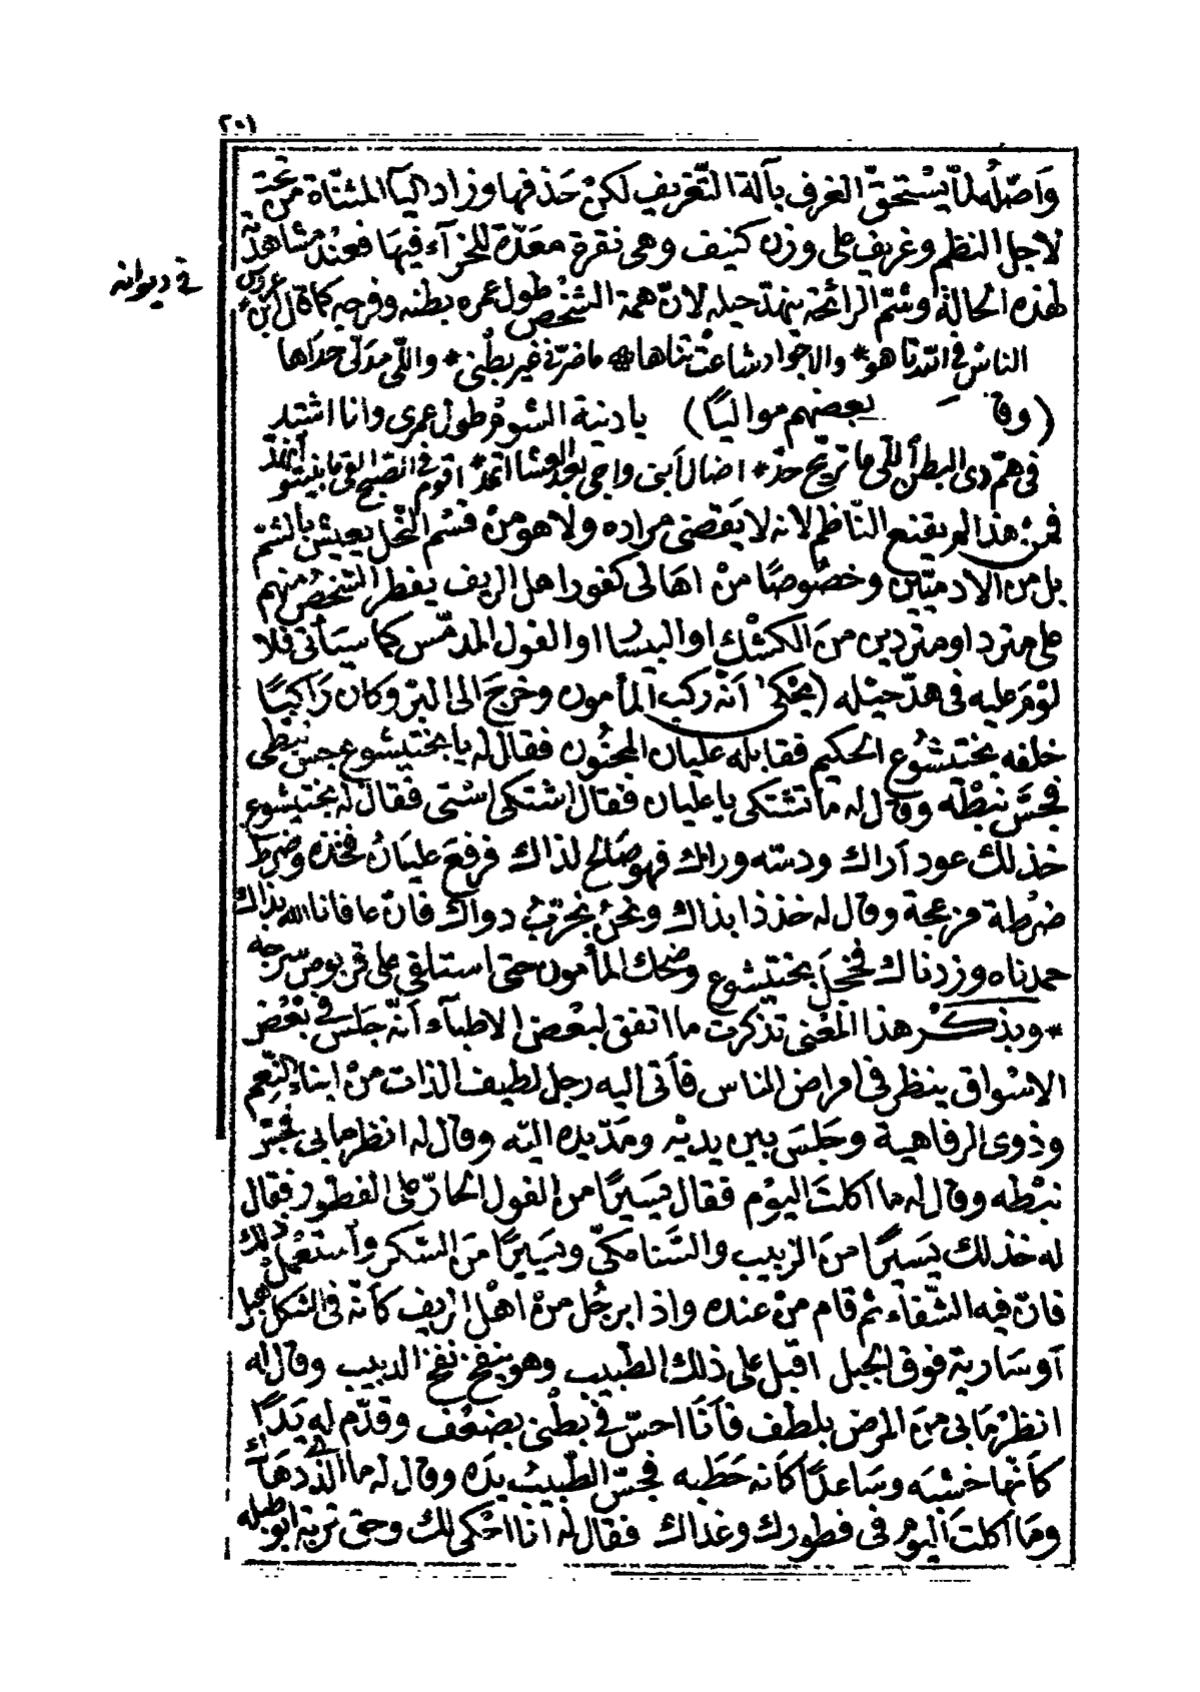 ٢٠١
وَاصْلُه لما يستحقّ الغرف بآلة التّغريف لكن حَذفها وزاد اليآ المثنّاة من تحت
لاجل النظم وغريف على وزن كنيف وهى نقرة معَدّة للخرآء فيهَا فعند مشاهدته
لهذه الحالة وشمّ الرائحة ينهدّ حيله لانّ همة الشخص طول عمره بطنه وفرجه كما قال ابن عروس
فى ديوانه
الناس فى الدّنا هو * والاجواد شاعت ثناها * ما ضرّنى غير بطنى * واللّى مدلّى حداها
(وقال بعضهم مواليًا) يا دنية الشوم طول عمرى وانا اشتد
فى همّ دى البطن اللى ما تريح حدّ * اضال ابنى واجى بعد العشا اتمدّ * اقوم فى الصبح القى ما بنيتو انهدّ
فمن هذا لم يقنع النّاظم لانه لا يَقضى مراده ولا هو من قسم النّحل يعيش بالشم
بل من الادميّين وخصُوصًا من اهالى كفور اهل الريف يفطر الشخص منهم
على مترد او متردين من الكشك او البيسا او الفول المدمّس كما سيَأتى فلا
لوم عليه فى هدّ حيْله (يحْكى) انّه ركب المأمون وخرج الى البرّ وكان رَاكبًا
خلفه بختشوع الحكيم فقابله عليان المجنُون فقال له يا بختيشوع جس نبْطى
فجسَّ نبْطه وقال له ما تشتكى يا عليان فقال اشتكى استى فقال له بختيشوع
خذ لك عود آراك ودسّه وراك فهو صَالح لذاك فرفع عليَانُ فخذه وضرط
ضرْطة مزعجة وقال له خذ ذا بذاك ونحن نجرّبُ دواك فان عافانا الله بذاك
حمدناه وزدناك فخجلَ بختيشوع وضحك المأمون حتى استلقى على قربوص سرجه
* وبذكر هذا المعْنى تذكرت ما اتفق لبعْض الاطبآء انّه جَلسَ فى بَعْض
الاسْواق ينظر فى امراض الناس فأتى اليه رجل لطيف الذات من ابناء النّعِم
وذوى الرفاهية وجَلسَ بين يديْه ومَدّ يده اليْه وقال له انظر ما بى فجسّ
نبْطه وقال له ما اكلتَ اليوْم فقال يسَيرًا من الفول الحارّ على الفطور فقال
له خذ لك يَسيرًا منَ الزبيب والسَّنا مكّى ويَسَيرًا منَ السّكر واستعمل ذلك
فانّ فيه الشّفآء ثم قام منْ عنده واذا برجُل من اهْل الريف كأنّه فى الشكل جبل
آو سَارية فوق الجبل اقبل على ذلك الطبيب وهو ينفخ نفخ الدبيب وقال له
انظر مَا بى منَ المرض بلطف فأنَا احسّ فى بطنى بضعْف وقدّم له يَدًا
كأنّها خشبَه وسَاعدًا كأنه حَطبه فجسّ الطّبيب يدَه وقال له ما الّذى دهَاك
وما اكلتَ اليوم فى فطورك وغداك فقال له انا احْكى لك وحق تربة ابو طبله